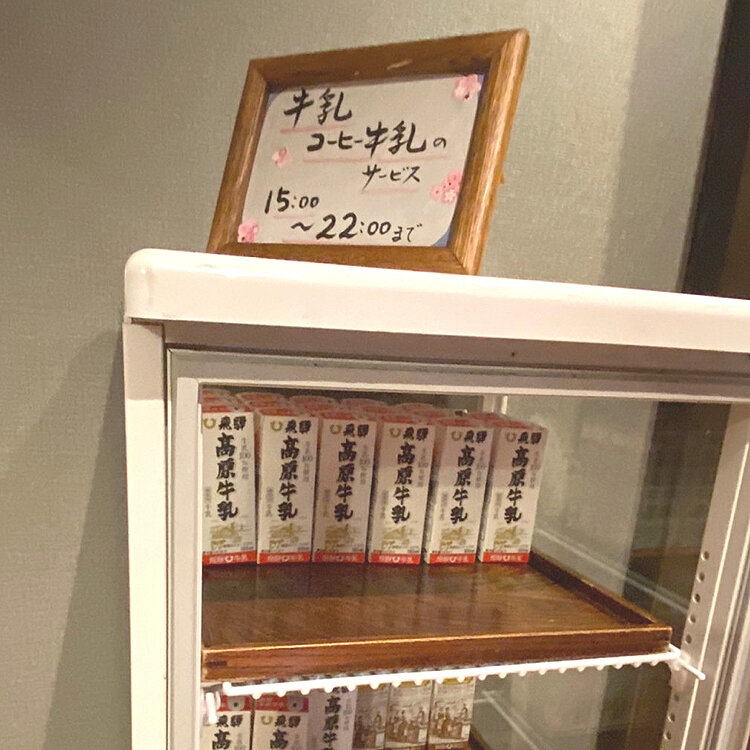 牛乳
コーヒー牛乳の
サービス
15:00
～22:00まで
飛騨
高原牛乳
飛騨
高原牛乳
飛騨
高原牛乳
飛騨
高原牛乳
飛騨
高原牛乳
飛騨
高原牛乳
飛騨
高原牛乳
飛騨
高原牛乳
高原牛乳